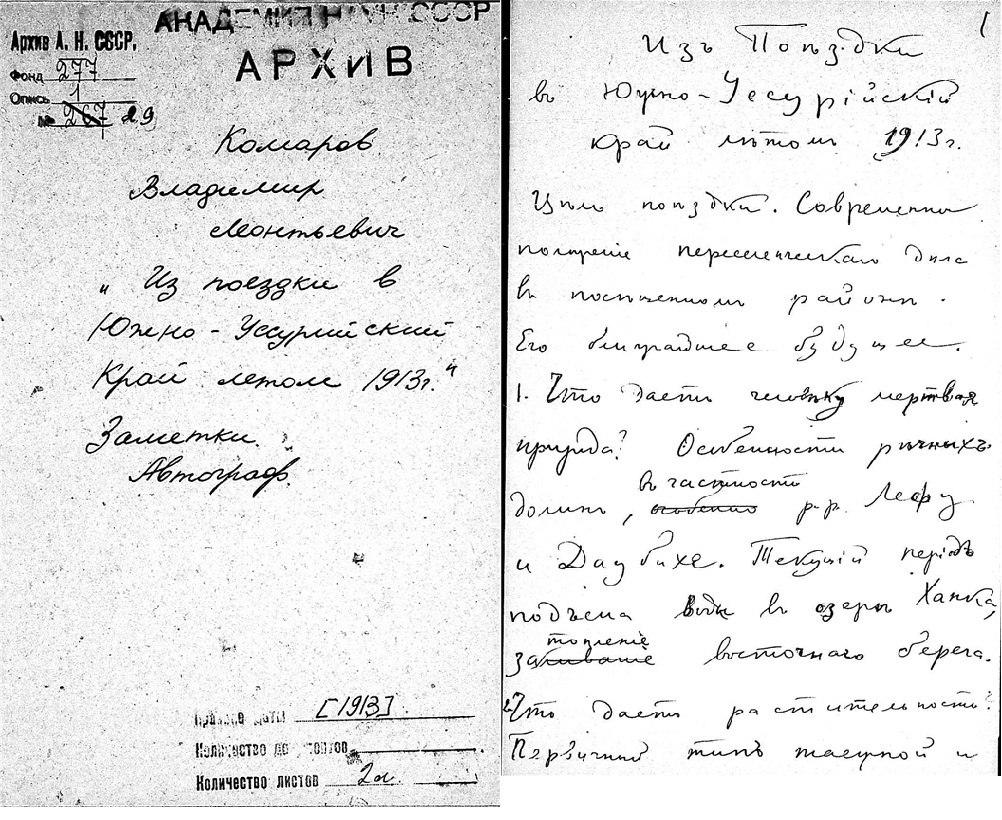 АКАДЕМИЯ НАУК СССР
Архив А. Н. СССР.
АРХИВ
Фонд 277
Опись 1
№ 267 29
Комаров
Владимир
Леонтьевич
„Из поездки в
Южно-Уссурийский
Край летом 1913г."
Заметки.
Автограф.
Крайние даты [1913]
Количество до
Количество листов 2л.
1
Изъ Поѣздки
въ Южно-Уссурійскій
край лѣтомъ 1913г.
Цѣль поѣздки. Современное
положеніе переселенческаго дѣла
въ посѣщенномъ районѣ.
Его ближайшее будущее.
1. Что даетъ человѣку мертвая
природа? Особенности рѣчныхъ
въ частности
долинъ, особенно р.р. Лефу
и Даубихе. Текущій періодъ
подъема воды въ озерѣ Ханка,
топленіе
заливаніе восточнаго берега.
2. Что даетъ растительность?
Первичный типъ таежной и